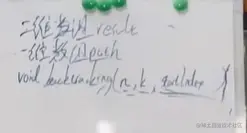 二维数组 result
一维数组 path
void backtracking(n, k, startIndex)
@稀土掘金技术社区